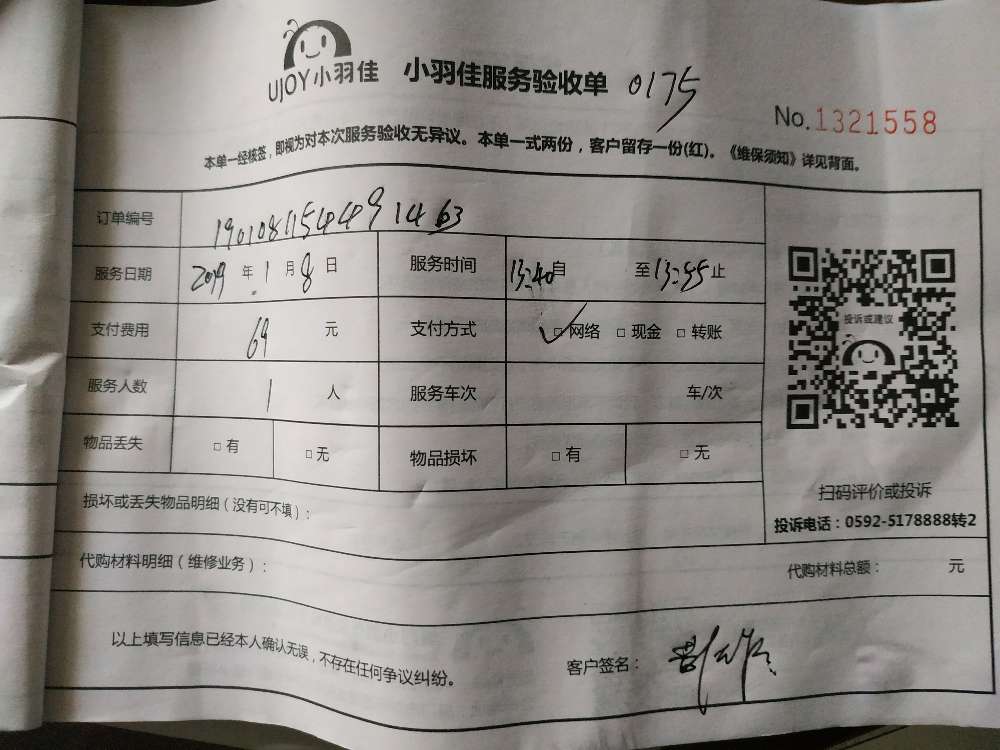 UJOY小羽佳 小羽佳服务验收单 0175
No.1321558
本单一经核签，即视为对本次服务验收无异议。本单一式两份，客户留存一份(红)。《维保须知》详见背面。
订单编号 19010811544891463
服务日期 2019年1月8日 服务时间 13:40自 至13:55止
支付费用 69 元 支付方式 ✓□网络 □现金 □转账
服务人数 1 人 服务车次 车/次
物品丢失 □有 □无 物品损坏 □有 □无
投诉或建议
扫码评价或投诉
投诉电话：0592-5178888转2
损坏或丢失物品明细（没有可不填）：
代购材料明细（维修业务）： 代购材料总额： 元
以上填写信息已经本人确认无误，不存在任何争议纠纷。 客户签名：